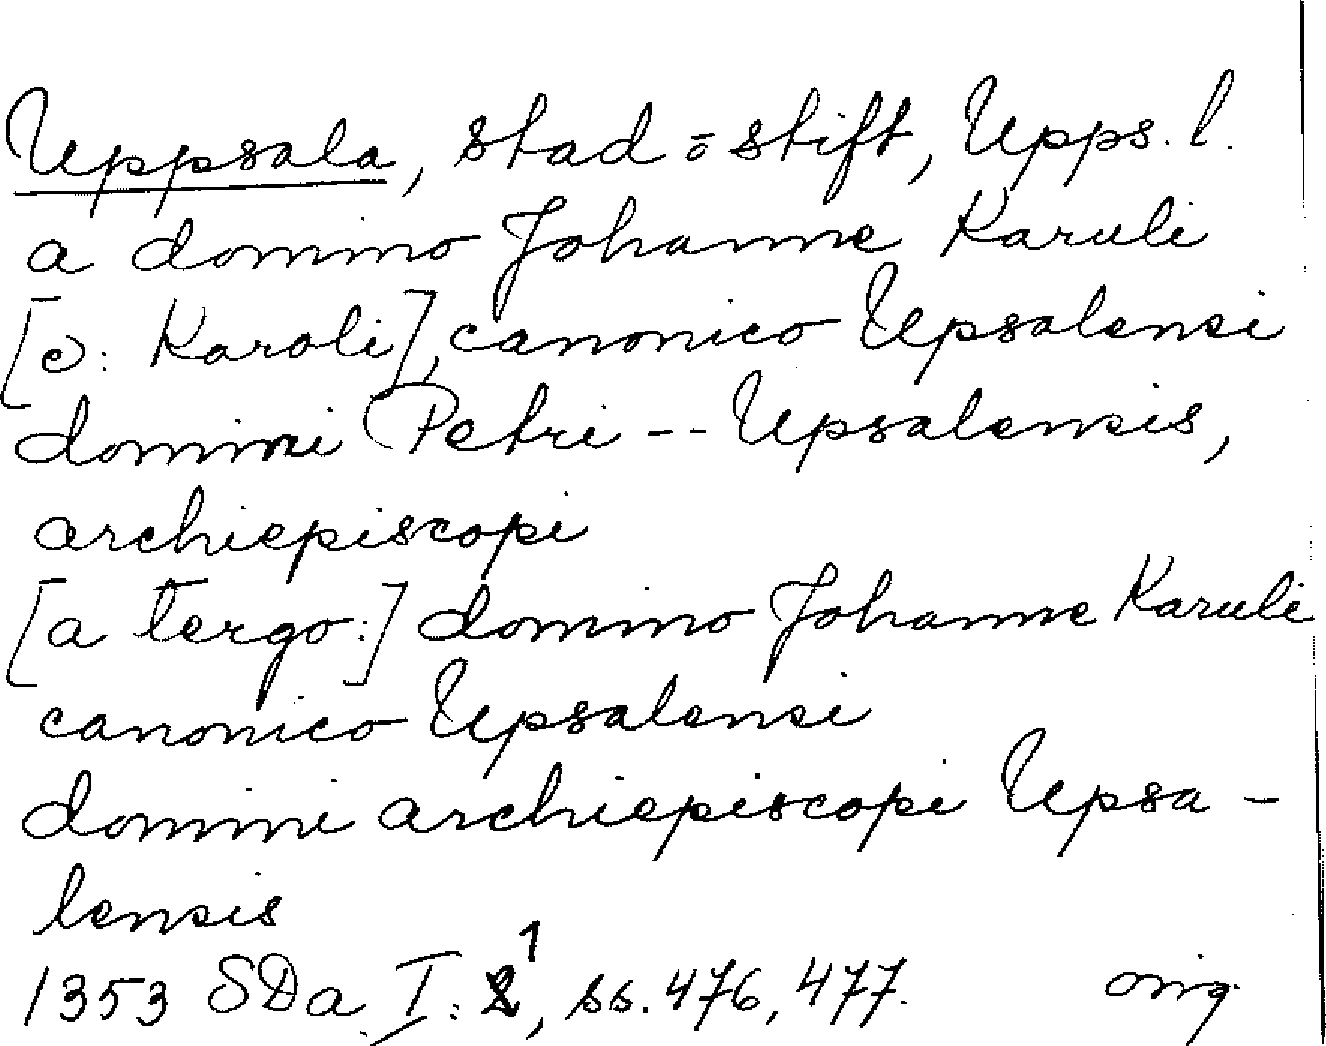 Uppsala, stad o stift, Upps. l.
a domino Johanne Karuli
[ɔ: Karoli], canonico Upsalensi
domini Petri -- Upsalensis,
archiepiscopi
[a tergo:] domino Johanne Karuli
canonico Upsalensi
domini archiepiscopi Upsa-
lensis
1353 SDa I: 1, ss. 476, 477. orig.